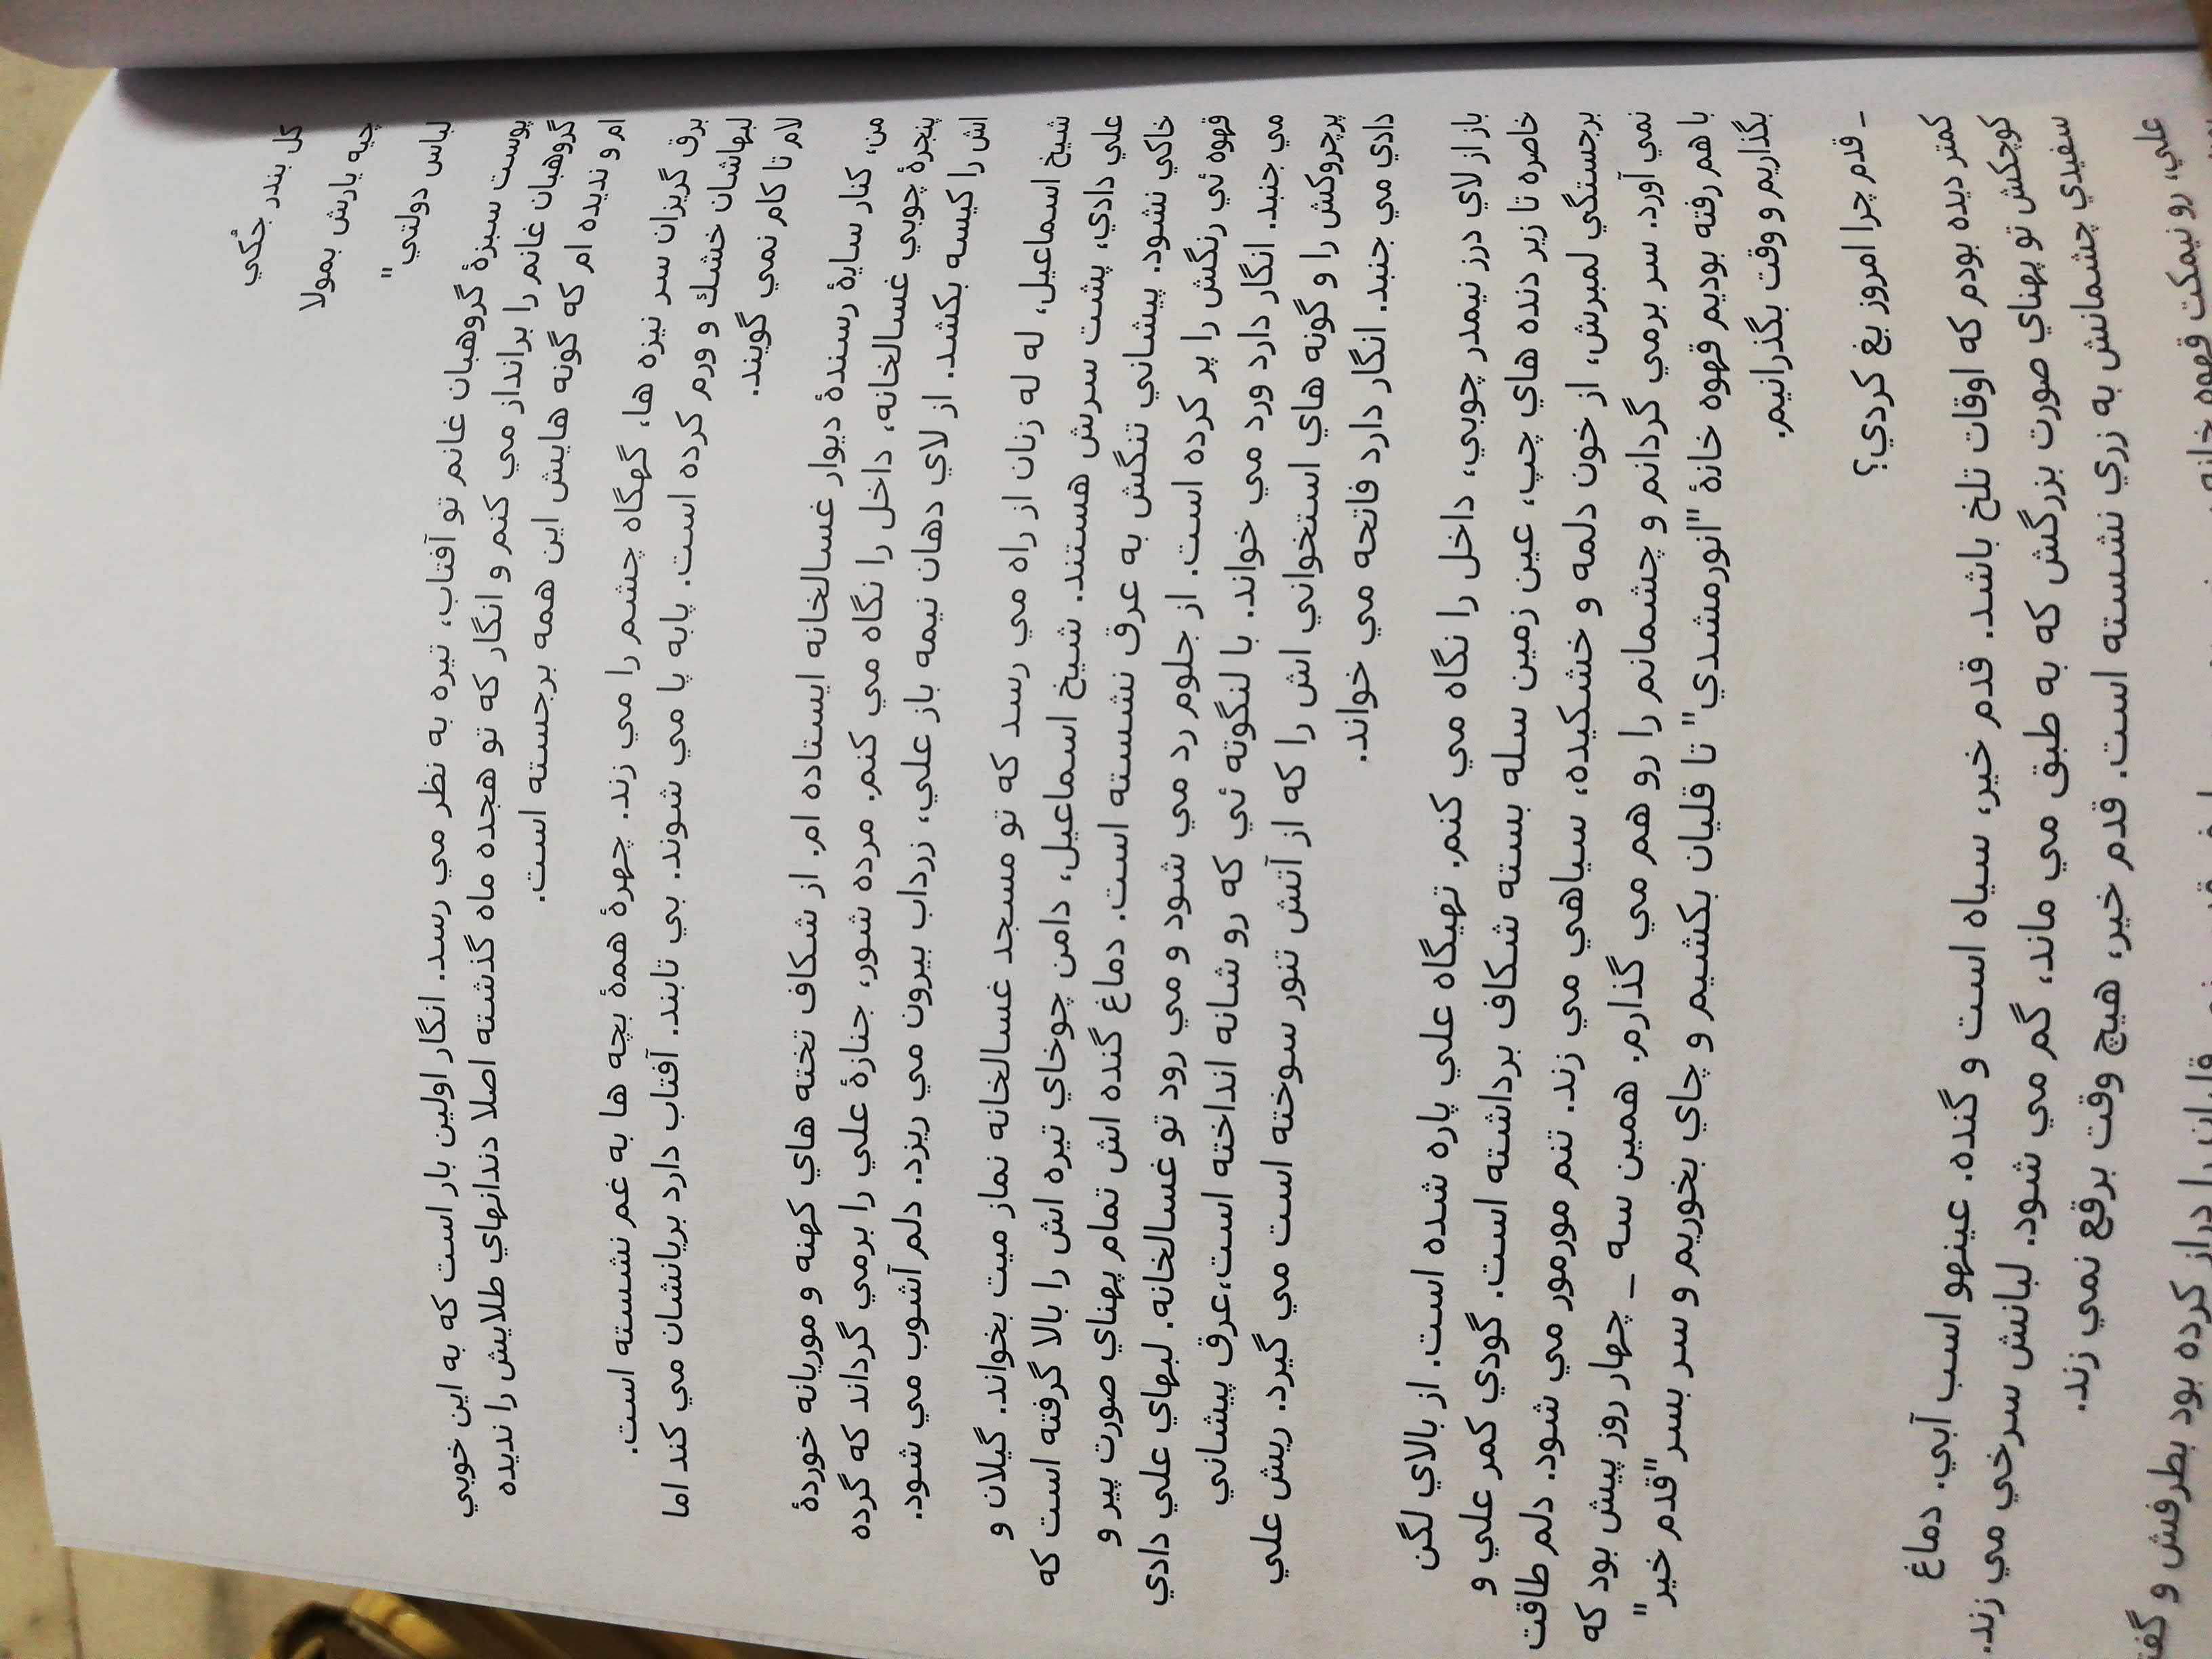 گل بندر جُكي
چيه يارش بمولا
لباس دولتي"
پوست سبزهٔ گروهبان غانم تو آفتاب، تيره به نظر مي رسد. انگار اولين بار است كه به اين خوبي
گروهبان غانم را برانداز مي كنم و انگار كه تو هجده ماه گذشته اصلا دندانهاي طلايش را نديده
ام و نديده ام كه گونه هايش اين همه برجسته است.
برق گريزان سر نيزه ها، گهگاه چشم را مي زند. چهرهٔ همهٔ بچه ها به غم نشسته است.
لبهاشان خشك و ورم كرده است. پابه پا مي شوند. بي تابند. آفتاب دارد بريانشان مي كند اما
لام تا كام نمي گويند.
من، كنار سايهٔ رسندهٔ ديوار غسالخانه ايستاده ام. از شكاف تخته هاي كهنه و موريانه خوردهٔ
پنجرهٔ چوبي غسالخانه، داخل را نگاه مي كنم. مرده شور، جنازهٔ علي را برمي گرداند كه گرده
اش را كيسه بكشد. از لاي دهان نيمه باز علي، زرداب بيرون مي ريزد. دلم آشوب مي شود.
شيخ اسماعيل، له له زنان از راه مي رسد كه تو مسجد غسالخانه نماز ميت بخواند. گيلان و
علي دادي، پشت سرش هستند. شيخ اسماعيل، دامن چوخاي تيره اش را بالا گرفته است كه
خاكي نشود. پيشاني تنگش به عرق نشسته است. دماغ گنده اش تمام پهناي صورت پير و
قهوه ئي رنگش را پر كرده است. از جلوم رد مي شود و مي رود تو غسالخانه. لبهاي علي دادي
مي جنبد. انگار دارد ورد مي خواند. با لنگوته ئي كه رو شانه انداخته است،عرق پيشاني
پرچروكش را و گونه هاي استخواني اش را كه از آتش تنور سوخته است مي گيرد. ريش علي
دادي مي جنبد. انگار دارد فاتحه مي خواند.
باز از لاي درز نيمدر چوبي، داخل را نگاه مي كنم. تهيگاه علي پاره شده است. از بالاي لگن
خاصره تا زير دنده هاي چپ، عين زمين سله بسته شكاف برداشته است. گودي كمر علي و
برجستگي لمبرش، از خون دلمه و خشكيده، سياهي مي زند. تنم مورمور مي شود. دلم طاقت
نمي آورد. سر برمي گردانم و چشمانم را رو هم مي گذارم. همين سه ـ چهار روز پيش بود كه
با هم رفته بوديم قهوه خانهٔ "انورمشدي" تا قليان بكشيم و چاي بخوريم و سر بسر"قدم خير"
بگذاريم و وقت بگذرانيم.
ـ قدم چرا امروز بغ كردي؟
كمتر ديده بودم كه اوقات تلخ باشد. قدم خير، سياه است و گنده. عينهو اسب آبي. دماغ
كوچكش تو پهناي صورت بزرگش كه به طبق مي ماند، گم مي شود. لبانش سرخي مي زند.
سفيدي چشمانش به زري نشسته است. قدم خير، هيچ وقت برقع نمي زند.
علي، رو نيمكت قهوه خانه قليان را دراز كرده بود بطرفش و